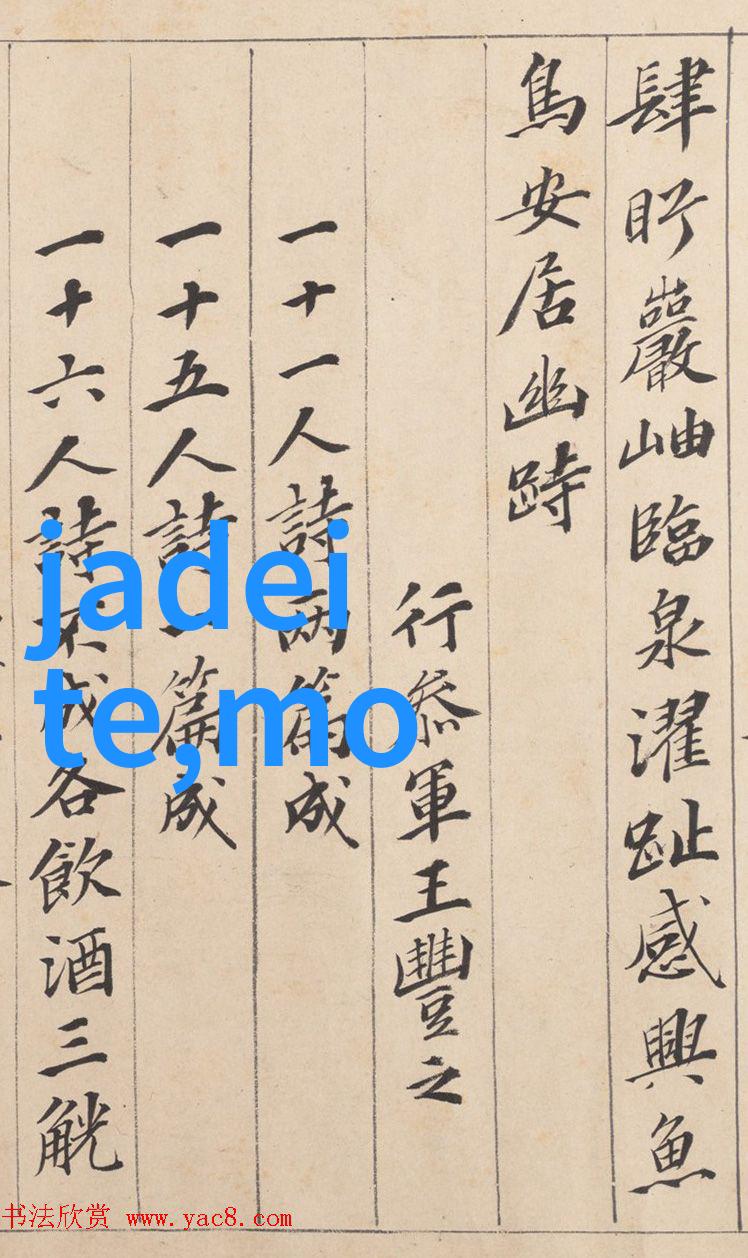 肆盻巖岫臨泉濯趾感興魚
鳥安居幽跱
行叅軍王豐之
一十一人詩兩篇成
一十五人詩一篇成
一十六人詩不成各飲酒三觥
jadei
te,mo
书法欣赏 www.yac8.com